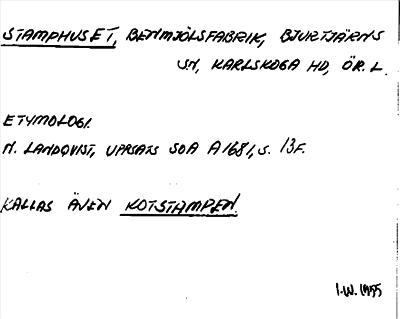 STAMPHUSET, BENMJÖLSFABRIK, BJURTJÄRNS
SN, KARLSKOGA HD, ÖR. L.
ETYMOLOGI.
N. LANDQVIST, UPPSATS SOA A 1681, S. 13F.
KALLAS ÄVEN KOTSTAMPEN.
I.W. 1955